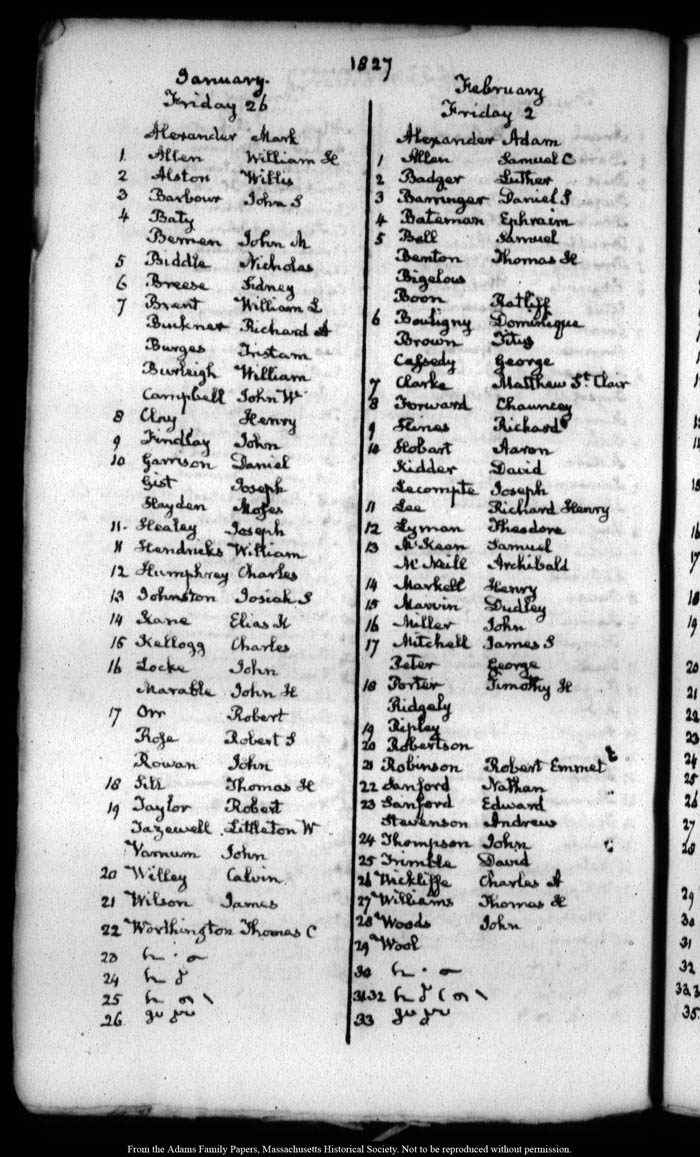 1827
January.
Friday 26
Alexander Mark
1 Allen William H
2 Alston Willis
3 Barbour John S
4 Baty
Bernen John M
5 Biddle Nicholas
6 Breese Sidney
7 Brent William L
Buckner Richard A
Burges Tristam
Burleigh William
Campbell John W
8 Clay Henry
9 Findlay John
10 Garrison Daniel
Gist Joseph
Hayden Moses
11 Healey Joseph
11 Hendricks William
12 Humphrey Charles
13 Johnston Josiah S
14 Kane Elias K
15 Kellogg Charles
16 Locke John
Marable John H
17 Orr Robert
Rose Robert S
Rowan John
18 Sill Thomas H
19 Taylor Robert
Tazewell Littleton W
Varnum John
20 Willey Calvin
21 Wilson James
22 Worthington Thomas C
23
24
25
26
February
Friday 2
Alexander Adam
1 Allen Samuel C
2 Badger Luther
3 Barringer Daniel L
4 Bateman Ephraim
5 Bell Samuel
Benton Thomas H
Bigelow
Boon Ratliff
6 Bouligny Dominique
Brown Titus
Cassedy George
7 Clarke Matthew St. Clair
8 Forward Chauncey
9 Hines Richard
10 Hobart Aaron
Kidder David
Lecompte Joseph
11 Lee Richard Henry
12 Lyman Theodore
13 McKean Samuel
McNeill Archibald
14 Markell Henry
15 Marvin Dudley
16 Miller John
17 Mitchell James S
Peter George
18 Porter Timothy H
Ridgely
19 Ripley
20 Robertson
21 Robinson Robert Emmet
22 Sanford Nathan
23 Sanford Edward
Stevenson Andrew
24 Thompson John
25 Trimble David
26 Wickliffe Charles A
27 Williams Thomas H
28 Woods John
29 Wool
30
31 32
33
From the Adams Family Papers, Massachusetts Historical Society. Not to be reproduced without permission.